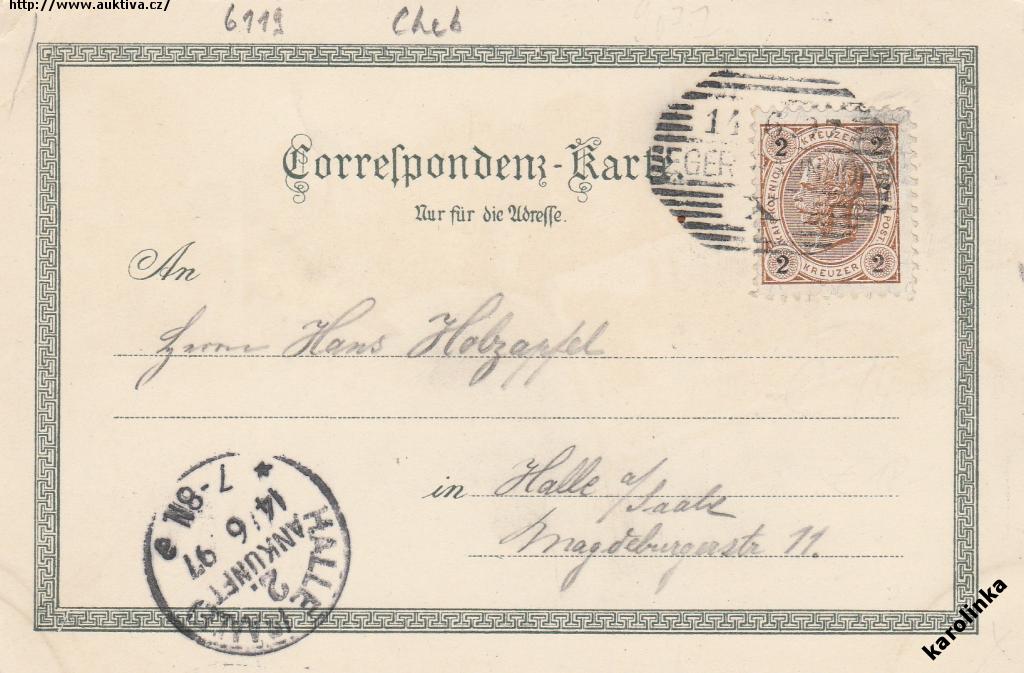 http://www.auktiva.cz/
6119 Cheb
Correspondenz-Karte
Nur für die Adresse.
14 6 97
EGER
2 KREUZER 2
2 KREUZER 2
An
Herrn Hans Holzapfel
in Halle a/Saale
Magdeburgerstr 11.
HALLE (SAALE) 2
ANKUNFT
14/6 97
7-8N
karolinka